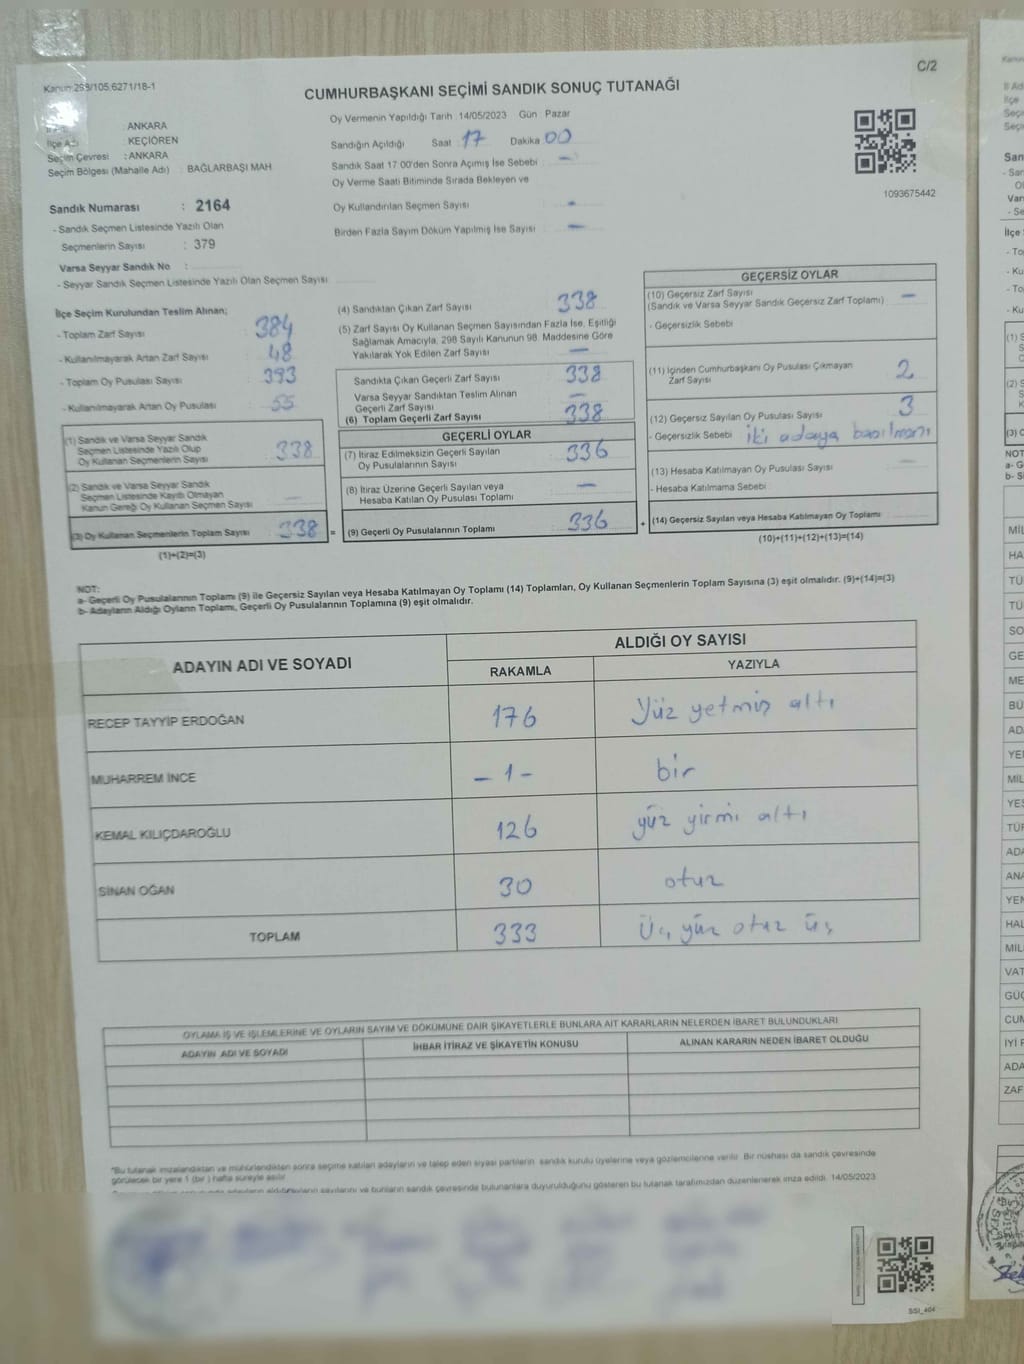 C/2
Kanun:298/105.6271/18-1
CUMHURBAŞKANI SEÇİMİ SANDIK SONUÇ TUTANAĞI
: ANKARA
İlçe Adı : KEÇİÖREN
Seçim Çevresi : ANKARA
Seçim Bölgesi (Mahalle Adı) : BAĞLARBAŞI MAH
Oy Vermenin Yapıldığı Tarih 14/05/2023 Gün Pazar
Sandığın Açıldığı Saat : 17 Dakika : 00
Sandık Saat 17:00'den Sonra Açımış İse Sebebi : -
Oy Verme Saati Bitiminde Sırada Bekleyen ve
Oy Kullandırılan Seçmen Sayısı : -
Birden Fazla Sayım Döküm Yapılmış İse Sayısı : -
1093675442
Sandık Numarası : 2164
- Sandık Seçmen Listesinde Yazılı Olan
Seçmenlerin Sayısı : 379
Varsa Seyyar Sandık No :
- Seyyar Sandık Seçmen Listesinde Yazılı Olan Seçmen Sayısı
İlçe Seçim Kurulundan Teslim Alınan;
- Toplam Zarf Sayısı : 384
- Kullanılmayarak Artan Zarf Sayısı : 48
- Toplam Oy Pusulası Sayısı : 393
- Kullanılmayarak Artan Oy Pusulası : 55
(1) Sandık ve Varsa Seyyar Sandık
Seçmen Listesinde Yazılı Olup
Oy Kullanan Seçmenlerin Sayısı 338
(2) Sandık ve Varsa Seyyar Sandık
Seçmen Listesinde Kayıtlı Olmayan
Kanun Gereği Oy Kullanan Seçmen Sayısı -
(3) Oy Kullanan Seçmenlerin Toplam Sayısı 338 =
(1)+(2)=(3)
(4) Sandıktan Çıkan Zarf Sayısı 338
(5) Zarf Sayısı Oy Kullanan Seçmen Sayısından Fazla İse, Eşitliği
Sağlamak Amacıyla, 298 Sayılı Kanunun 98. Maddesine Göre
Yakılarak Yok Edilen Zarf Sayısı -
Sandıkta Çıkan Geçerli Zarf Sayısı 338
Varsa Seyyar Sandıktan Teslim Alınan
Geçerli Zarf Sayısı -
(6) Toplam Geçerli Zarf Sayısı 338
GEÇERLİ OYLAR
(7) İtiraz Edilmeksizin Geçerli Sayılan
Oy Pusulalarının Sayısı 336
(8) İtiraz Üzerine Geçerli Sayılan veya
Hesaba Katılan Oy Pusulası Toplamı -
(9) Geçerli Oy Pusulalarının Toplamı 336 +
GEÇERSİZ OYLAR
(10) Geçersiz Zarf Sayısı
(Sandık ve Varsa Seyyar Sandık Geçersiz Zarf Toplamı) -
- Geçersizlik Sebebi
(11) İçinden Cumhurbaşkanı Oy Pusulası Çıkmayan
Zarf Sayısı 2
(12) Geçersiz Sayılan Oy Pusulası Sayısı 3
- Geçersizlik Sebebi iki adaya basılması
(13) Hesaba Katılmayan Oy Pusulası Sayısı -
- Hesaba Katılmama Sebebi
(14) Geçersiz Sayılan veya Hesaba Katılmayan Oy Toplamı
(10)+(11)+(12)+(13)=(14)
NOT:
a- Geçerli Oy Pusulalarının Toplamı (9) ile Geçersiz Sayılan veya Hesaba Katılmayan Oy Toplamı (14) Toplamları, Oy Kullanan Seçmenlerin Toplam Sayısına (3) eşit olmalıdır. (9)+(14)=(3)
b- Adayların Aldığı Oyların Toplamı, Geçerli Oy Pusulalarının Toplamına (9) eşit olmalıdır.
ADAYIN ADI VE SOYADI
ALDIĞI OY SAYISI
RAKAMLA YAZIYLA
RECEP TAYYİP ERDOĞAN 176 Yüz yetmiş altı
MUHARREM İNCE - 1 - bir
KEMAL KILIÇDAROĞLU 126 yüz yirmi altı
SİNAN OĞAN 30 otuz
TOPLAM 333 Üç yüz otuz üç
OYLAMA İŞ VE İŞLEMLERİNE VE OYLARIN SAYIM VE DÖKÜMÜNE DAİR ŞİKAYETLERLE BUNLARA AİT KARARLARIN NELERDEN İBARET BULUNDUKLARI
ADAYIN ADI VE SOYADI İHBAR İTİRAZ VE ŞİKAYETİN KONUSU ALINAN KARARIN NEDEN İBARET OLDUĞU
*Bu tutanak imzalandıktan ve mühürlendikten sonra seçime katılan adayların ve talep eden siyasi partilerin sandık kurulu üyelerine veya gözlemcilerine verilir. Bir nüshası da sandık çevresinde
görülecek bir yere 1 (bir) hafta süreyle asılır.
aldığı oyların sayılarını ve bunların sandık çevresinde bulunanlara duyurulduğunu gösteren bu tutanak tarafımızdan düzenlenerek imza edildi. 14/05/2023
SSI_404